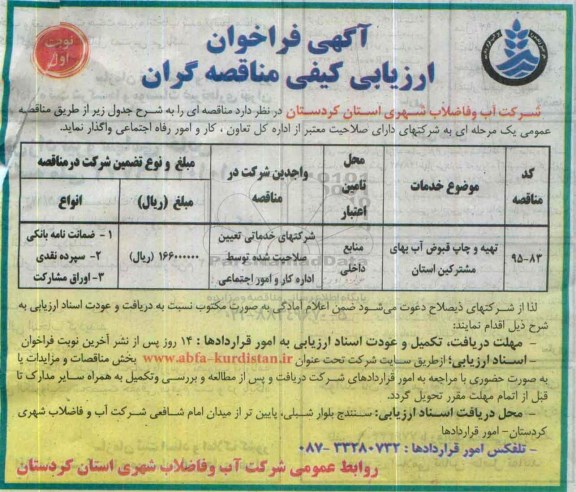 آگهی فراخوان
ارزیابی کیفی مناقصه گران
نوبت اول
شرکت آب وفاضلاب شهری استان کردستان در نظر دارد مناقصه ای را به شرح جدول زیر از طریق مناقصه
عمومی یک مرحله ای به شرکتهای دارای صلاحیت معتبر از اداره کل تعاون ، کار و امور رفاه اجتماعی واگذار نماید.
کد مناقصه
موضوع خدمات
محل تامین اعتبار
واجدین شرکت در مناقصه
مبلغ و نوع تضمین شرکت در مناقصه
مبلغ (ریال)
انواع
۹۵-۸۳
تهیه و چاپ قبوض آب بهای
مشترکین استان
منابع
داخلی
شرکتهای خدماتی تعیین
صلاحیت شده توسط
اداره کار و امور اجتماعی
۱۶۶۰۰۰۰۰۰ (ریال)
۱- ضمانت نامه بانکی
۲- سپرده نقدی
۳- اوراق مشارکت
لذا از شرکتهای ذیصلاح دعوت می‌شود ضمن اعلام آمادگی به صورت مکتوب نسبت به دریافت و عودت اسناد ارزیابی به
شرح ذیل اقدام نمایند:
– مهلت دریافت، تکمیل و عودت اسناد ارزیابی به امور قراردادها : ۱۴ روز پس از نشر آخرین نوبت فراخوان
– اسناد ارزیابی؛ ازطریق سایت شرکت تحت عنوان www.abfa-kurdistan.ir بخش مناقصات و مزایدات یا
به صورت حضوری با مراجعه به امور قراردادهای شرکت دریافت و پس از مطالعه و بررسی وتکمیل به همراه سایر مدارک تا
قبل از اتمام مهلت مقرر تحویل گردد.
– محل دریافت اسناد ارزیابی: سنندج بلوار شبلی، پایین تر از میدان امام شافعی شرکت آب و فاضلاب شهری
کردستان- امور قراردادها
– تلفکس امور قراردادها : ۳۳۲۸۰۷۳۲-۰۸۷
روابط عمومی شرکت آب وفاضلاب شهری استان کردستان